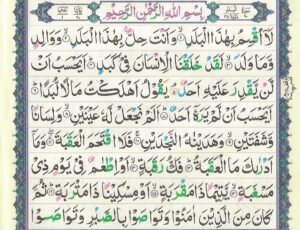 بِسْمِ اللّٰهِ الرَّحْمٰنِ الرَّحِيْمِ
لَاۤ اُقْسِمُ بِهٰذَا الْبَلَدِ ۙ وَاَنْتَ حِلٌّۢ بِهٰذَا الْبَلَدِ ۙ وَوَالِدٍ
وَّمَا وَلَدَ ۙ لَقَدْ خَلَقْنَا الْاِنْسَانَ فِيْ كَبَدٍ ؕ اَيَحْسَبُ اَنْ
لَّنْ يَّقْدِرَ عَلَيْهِ اَحَدٌ ۘ يَقُوْلُ اَهْلَكْتُ مَالًا لُّبَدًا ؕ
اَيَحْسَبُ اَنْ لَّمْ يَرَهٗۤ اَحَدٌ ؕ اَلَمْ نَجْعَلْ لَّهٗ عَيْنَيْنِ ۙ وَلِسَانًا
وَّشَفَتَيْنِ ۙ وَهَدَيْنٰهُ النَّجْدَيْنِ ۚ فَلَا اقْتَحَمَ الْعَقَبَةَ ؗ وَمَاۤ
اَدْرٰىكَ مَا الْعَقَبَةُ ؕ فَكُّ رَقَبَةٍ ۙ اَوْ اِطْعٰمٌ فِيْ يَوْمٍ ذِيْ
مَسْغَبَةٍ ۙ يَّتِيْمًا ذَا مَقْرَبَةٍ ۙ اَوْ مِسْكِيْنًا ذَا مَتْرَبَةٍ ؕ ثُمَّ
كَانَ مِنَ الَّذِيْنَ اٰمَنُوْا وَتَوَاصَوْا بِالصَّبْرِ وَتَوَاصَوْا